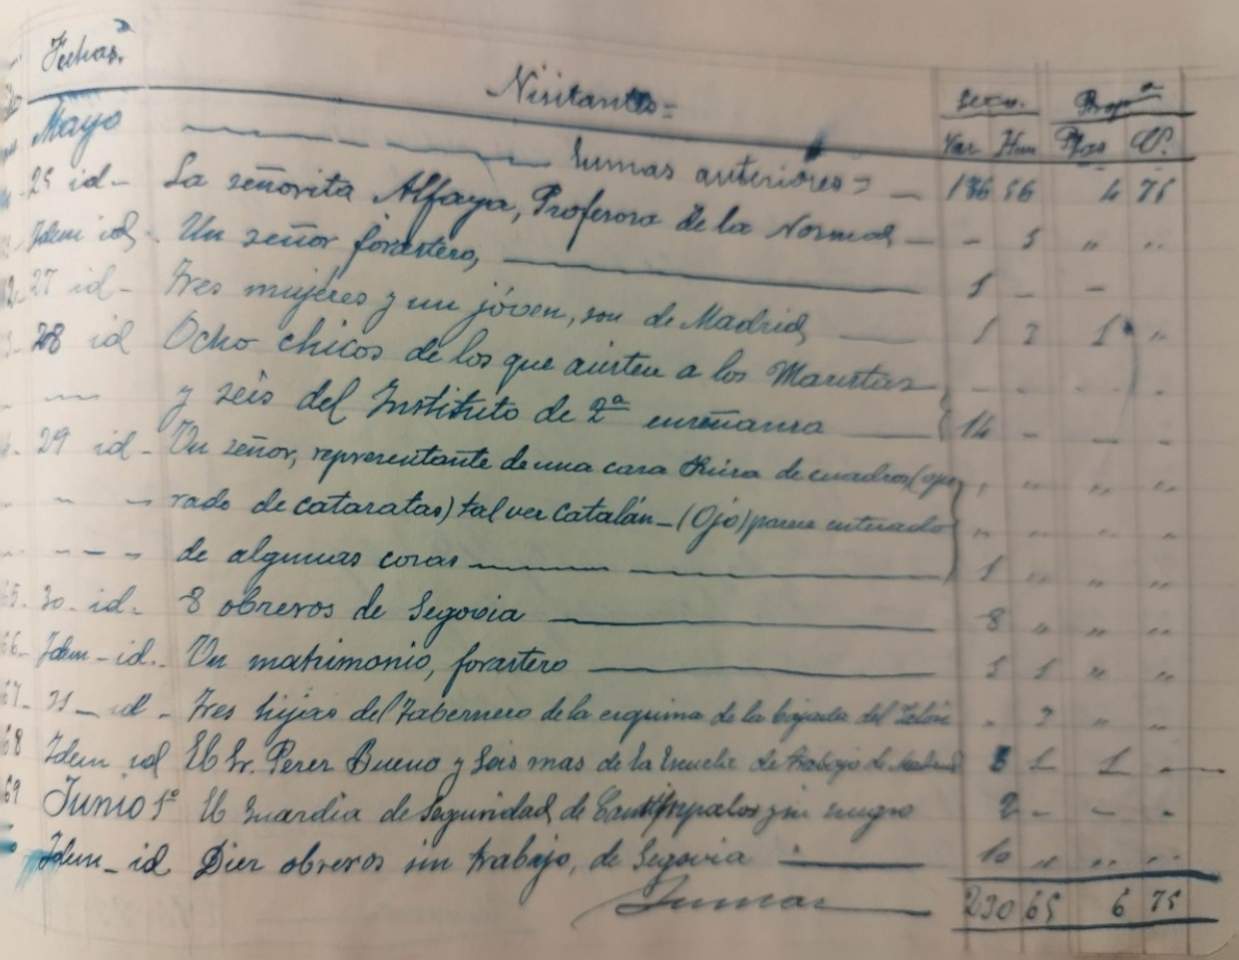 Fechas. Visitantes = Sexo. Prop.ª
Mayo Sumas anteriores = Var Hem Ptas Cs.
186 56 4 75
25 id - La señorita Alfaya, Profesora de la Normal - - 1 " "
Idem id - Un señor forastero, 1 - -
27 id - Tres mujeres y un jóven, son de Madrid 1 3 1 "
28 id Ocho chicos de los que asisten a los Maristas - - - -
y seis del Instituto de 2ª enseñanza 14 - - -
29 id - Un señor, representante de una casa Suiza de cuadros (ope " " " "
rado de cataratas) tal vez Catalán - (Ojo) parece enterado " " " "
de algunas cosas 1 " " "
30 - id - 8 obreros de Segovia 8 " " "
Idem - id. - Un matrimonio, forastero 1 1 " "
31 - id - Tres hijas del Tabernero de la esquina de la bajada del - 3 " "
Idem id El Sr. Perez Bueno y seis mas de la Escuela de trabajo de Madrid 1 1 -
Junio 1º El Guardia de Seguridad de y su suegro 2 - - -
Idem - id Diez obreros sin trabajo, de Segovia 10 " " "
Sumas 230 65 6 75